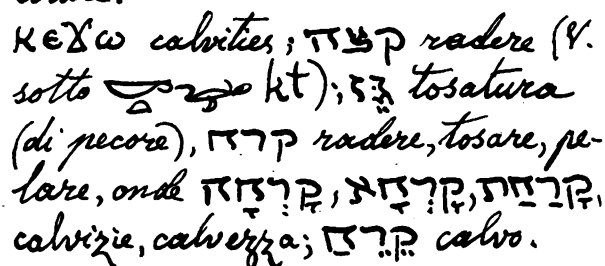 ⲕⲉϫⲱ calvities; קצה radere (V.
sotto kt); גֵּז tosatura
(di pecore), קרח radere, tosare, pe-
lare, onde קָרְחָה, קָרְחָא, קָרַחַת,
calvizie, calvezza; קֵרֵחַ calvo.